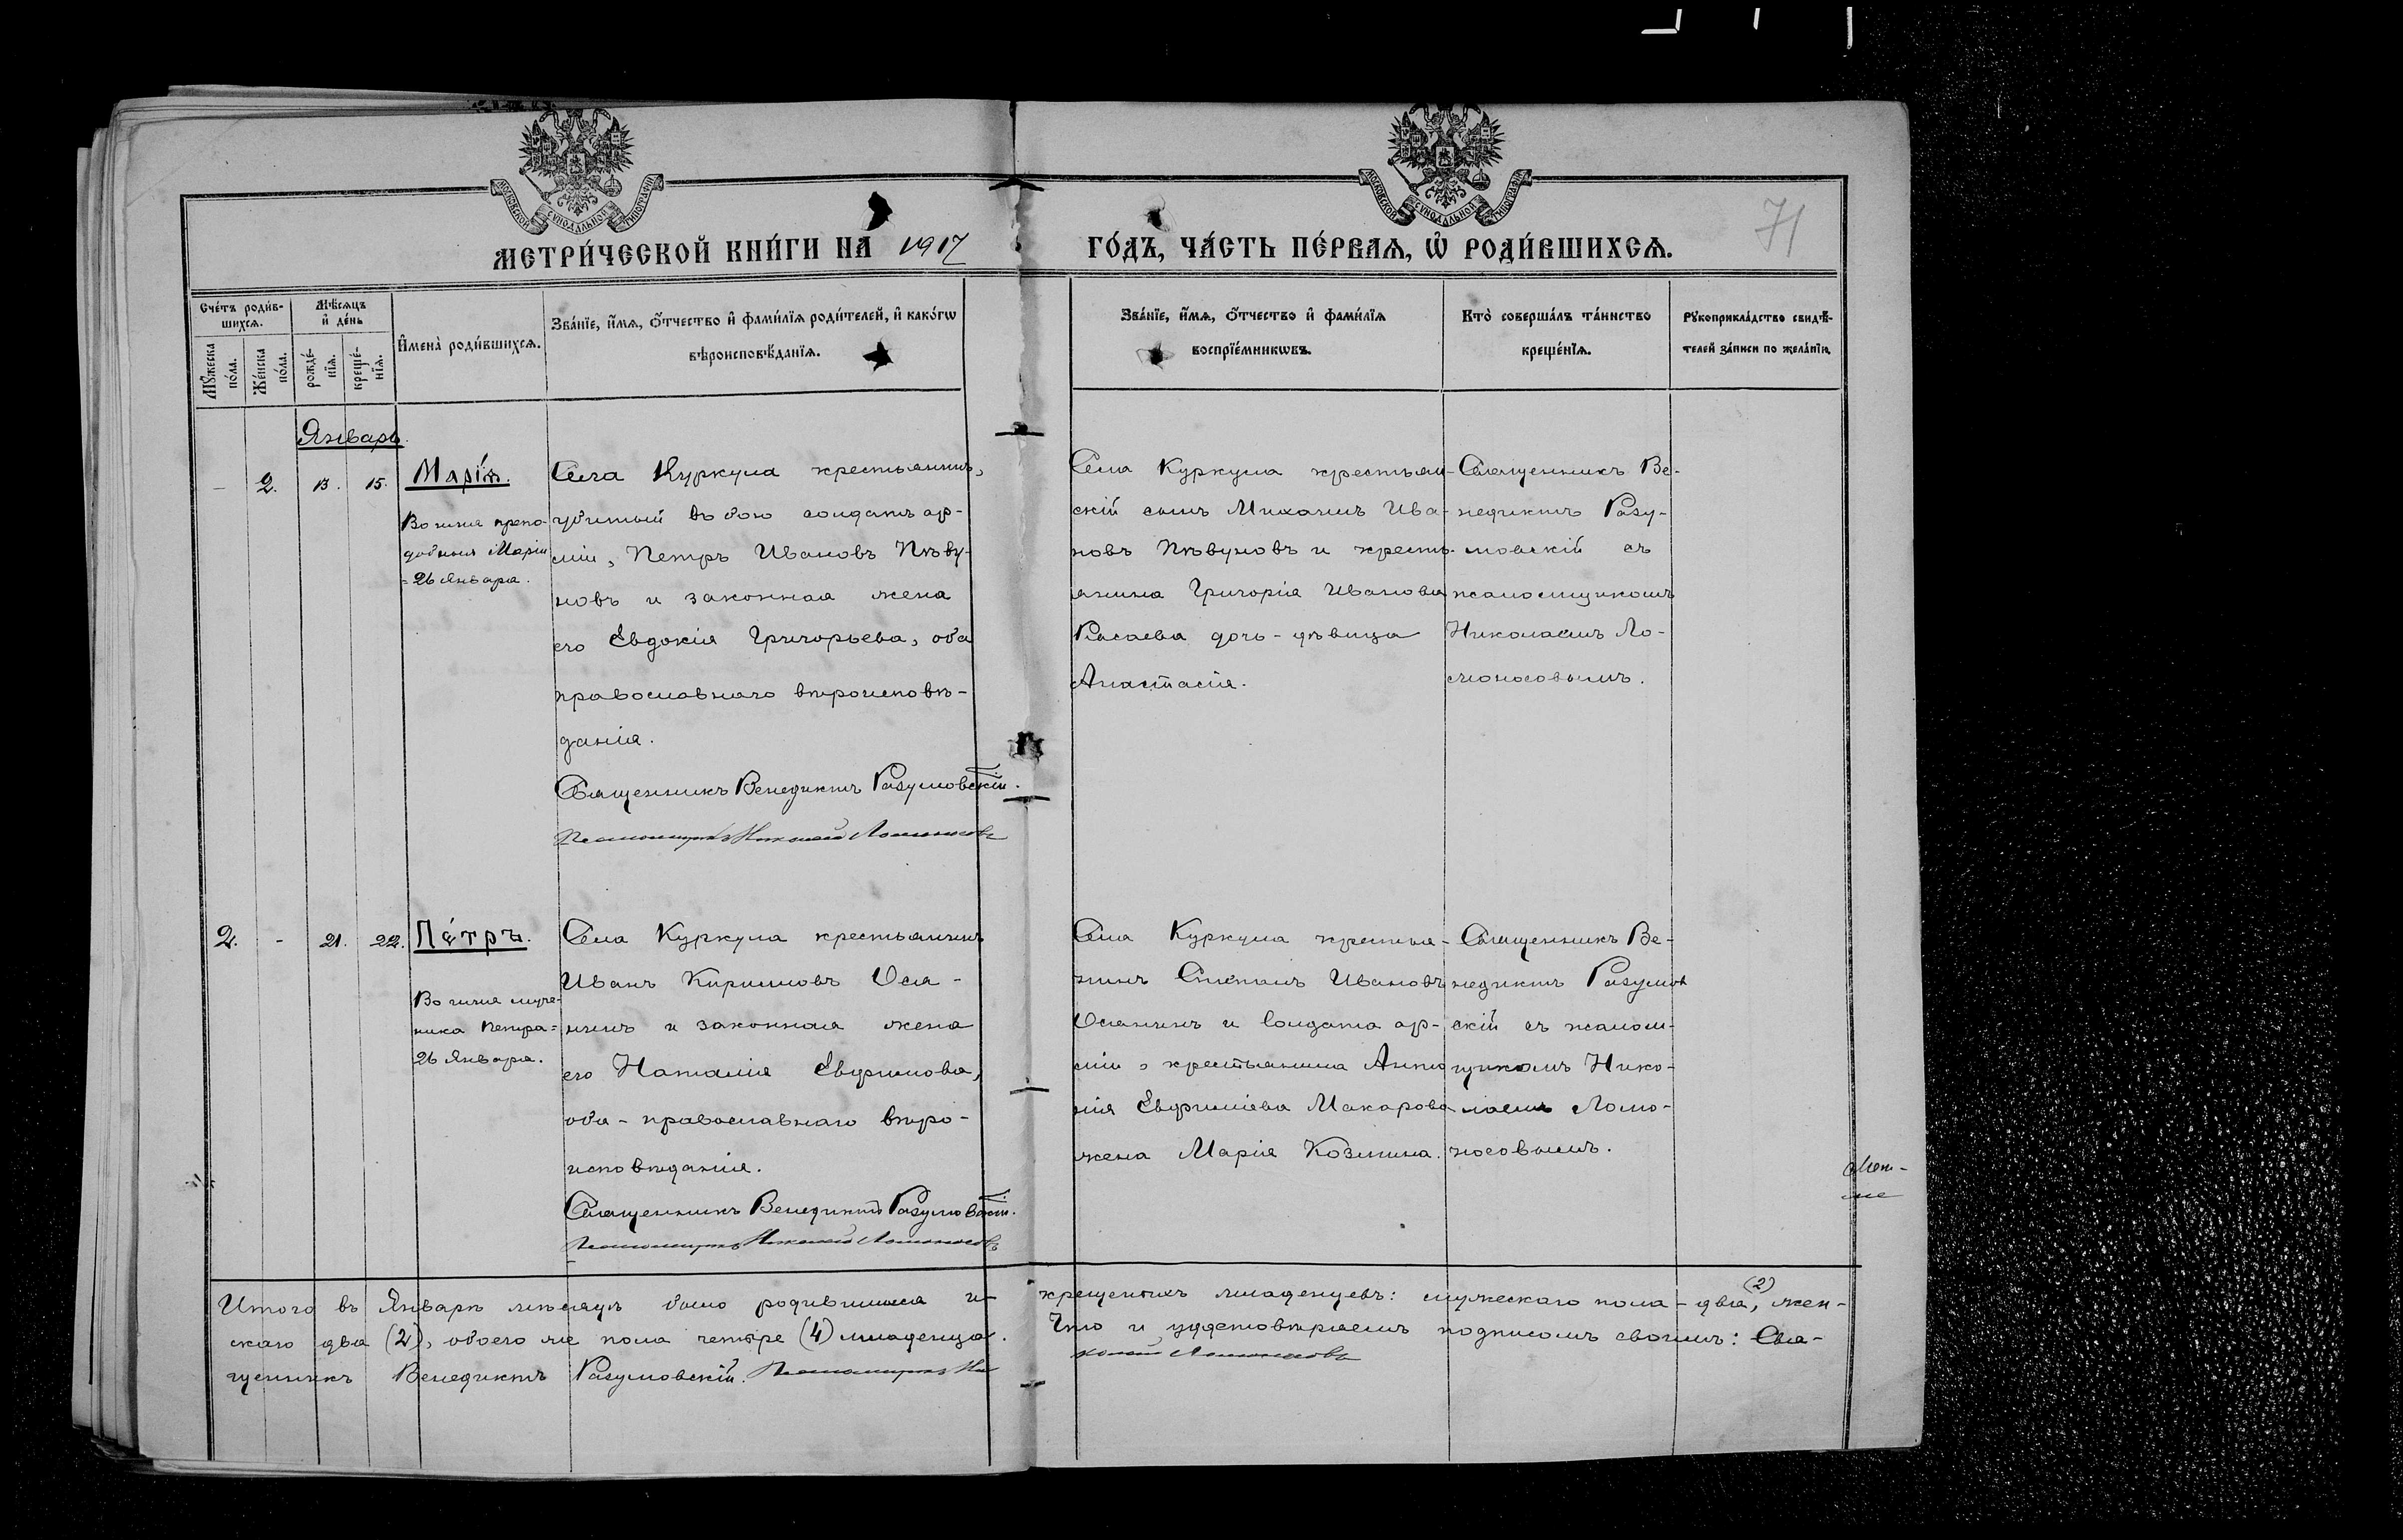 МОСКОВСКОЙ СУНОДАЛЬНОЙ ТИПОГРАФІИ
МОСКОВСКОЙ СУНОДАЛЬНОЙ ТИПОГРАФІИ
71
МЕТРИ́ЧЕСКОЙ КНИ́ГИ НА 1917
ГО́ДЪ, ЧА́СТЬ ПЕ́РВАѦ, Ѡ҆ РОДИ́ВШИХСѦ.
Сче́тъ роди́в-
шихсѧ.
Мѣ́сѧцъ
и҆ де́нь
Мꙋ́жеска
по́ла.
Же́нска
по́ла.
рожде́-
нїѧ.
креще́-
нїѧ.
И҆мена̀ роди́вшихсѧ.
Зва́нїе, и҆́мѧ, ѻ҆́тчество и҆ фами́лїѧ роди́телей, и҆ како́гѡ
вѣроисповѣ́данїѧ.
Зва́нїе, и҆́мѧ, ѻ҆́тчество и҆ фами́лїѧ
воспрїе́мникѡвъ.
Кто̀ соверша́лъ та́инство
креще́нїѧ.
Рꙋкоприкла́дство свидѣ́-
телей за́писи по жела́нїю.
Январь.
- 2. 13. 15.
Марі́я.
Во имя препо-
добныя Маріи
=26 января.
Села Куркула крестьянинъ,
убитый въ бою солдатъ ар-
міи, Петръ Ивановъ Пѣву-
новъ и законная жена
его Евдокія Григорьева, оба
православнаго вѣроисповѣ-
данія.
Священникъ Венедиктъ Разумовскій.
Псаломщикъ Николай Ломоносовъ
Села Куркула крестьян-
скій сынъ Михаилъ Ива-
новъ Пѣвуновъ и кресть-
янина Григорія Иванова
дочь-дѣвица
Анастасія.
Священникъ Ве-
недиктъ Разу-
мовскій съ
псаломщикомъ
Николаемъ Ло-
моносовымъ.
2. - 21. 22.
Пе́тръ.
Во имя муче-
ника Петра=
26 Января.
Села Куркула крестьянинъ
Иванъ Кирилловъ Ося-
нинъ и законная жена
его Наталія Евфимова,
оба-православнаго вѣро-
исповѣданія.
Священникъ Венедиктъ Разумовскій.
Псаломщикъ Николай Ломоносовъ
Села Куркула крестья-
нинъ Степанъ Ивановъ
Осянинъ и солдата ар-
міи, крестьянина Анто
нія Евфиміева Макарова
жена Марія Козмина.
Священникъ Ве-
недиктъ Разумов
скій съ псалом-
щикомъ Нико-
лаемъ Ломо-
носовымъ.
Итого въ Январѣ мѣсяцѣ было родившихся и крещенныхъ младенцевъ: мужескаго пола-два (2), жен-
скаго два (2), обоего же пола четыре (4) младенца. Что и удостовѣряемъ подписомъ своимъ: Свя-
щенникъ Венедиктъ Разумовскій. Псаломщикъ Ни
колай Ломоносовъ